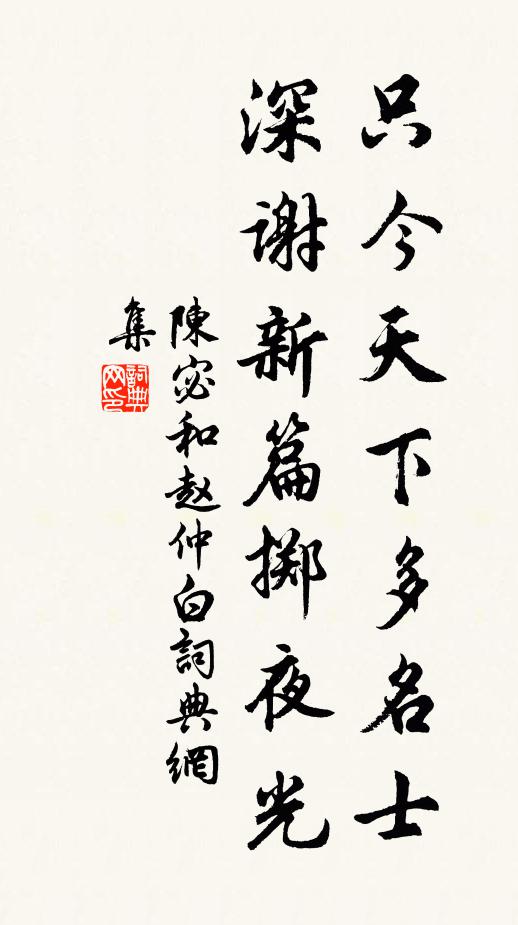 只今天下多名士
深谢新篇掷夜光
陳宓和赵仲白詞典網
集
詞典网印